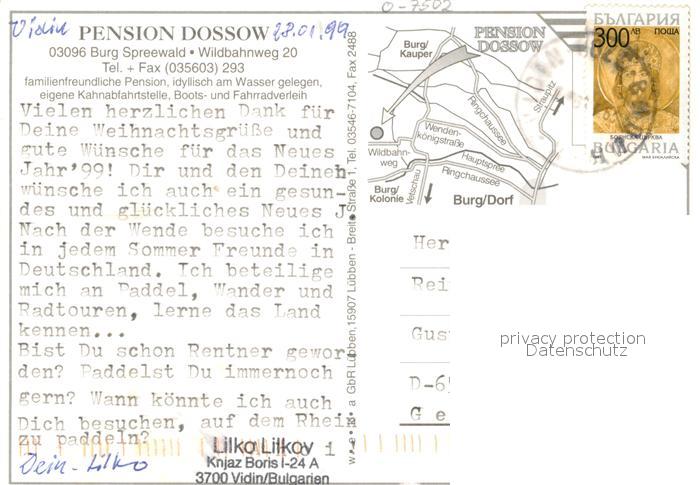 O-7502
Vidin 28.01.99
PENSION DOSSOW
03096 Burg Spreewald • Wildbahnweg 20
Tel. + Fax (035603) 293
familienfreundliche Pension, idyllisch am Wasser gelegen,
eigene Kahnabfahrtstelle, Boots- und Fahrradverleih
Vielen herzlichen Dank für
Deine Weihnachtsgrüße und
gute Wünsche für das Neues
Jahr'99! Dir und den Deineh
wünsche ich auch ein gesun-
des und glückliches Neues J
Nach der Wende besuche ich
in jedem Sommer Freunde in
Deutschland. Ich beteilige
mich an Paddel, Wander und
Radtouren, lerne das Land
kennen...
Bist Du schon Rentner gewor
den? Paddelst Du immernoch
gern? Wann könnte ich auch
Dich besuchen, auf dem Rhein
zu paddeln?
Dein - Lilko
Lilko Lilkov
Knjaz Boris I-24 A
3700 Vidin/Bulgarien
GbR Lübben, 15907 Lübben - Breite Straße 1, Tel. 03546-7104, Fax 2488
PENSION
DOSSOW
Burg/
Kauper
Straupitz
Ringchaussee
Wenden-
königstraße
Wildbahn-
weg
Hauptspree
Ringchaussee
Burg/
Kolonie
Vetschau
Burg/Dorf
БЪЛГАРИЯ
300 ЛВ ПОЩА
БОЯНСКА ЦЪРКВА
BULGARIA
Her
Rei
Gus
D-6
G e
privacy protection
Datenschutz